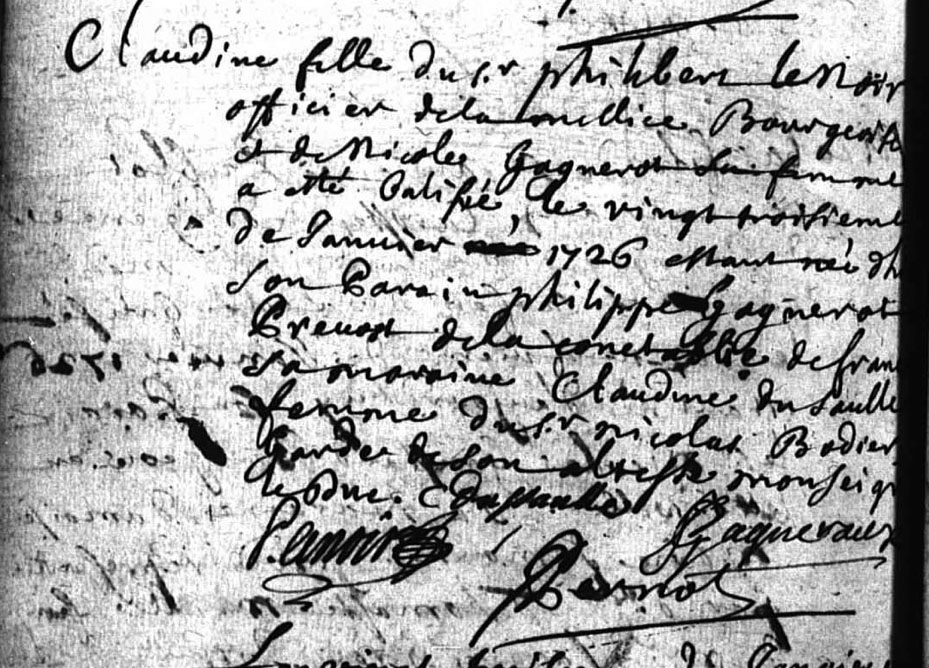 Claudine fille du sr philibert lenoir
officier de la millice Bourgeoise
et de Nicole Gagnerot sa femme
a esté batisée, le vingt troisieme
de Janvier 1726 estant née
Son Parain philippe Gagnerot
Prevost de la conetablie de fran
sa maraine Claudine du Saulle
femme du sr nicolas Bodier
Garde de son altesse monseig
le Duc. C Dusaulle
Lenoir Gagneraux
Pernot